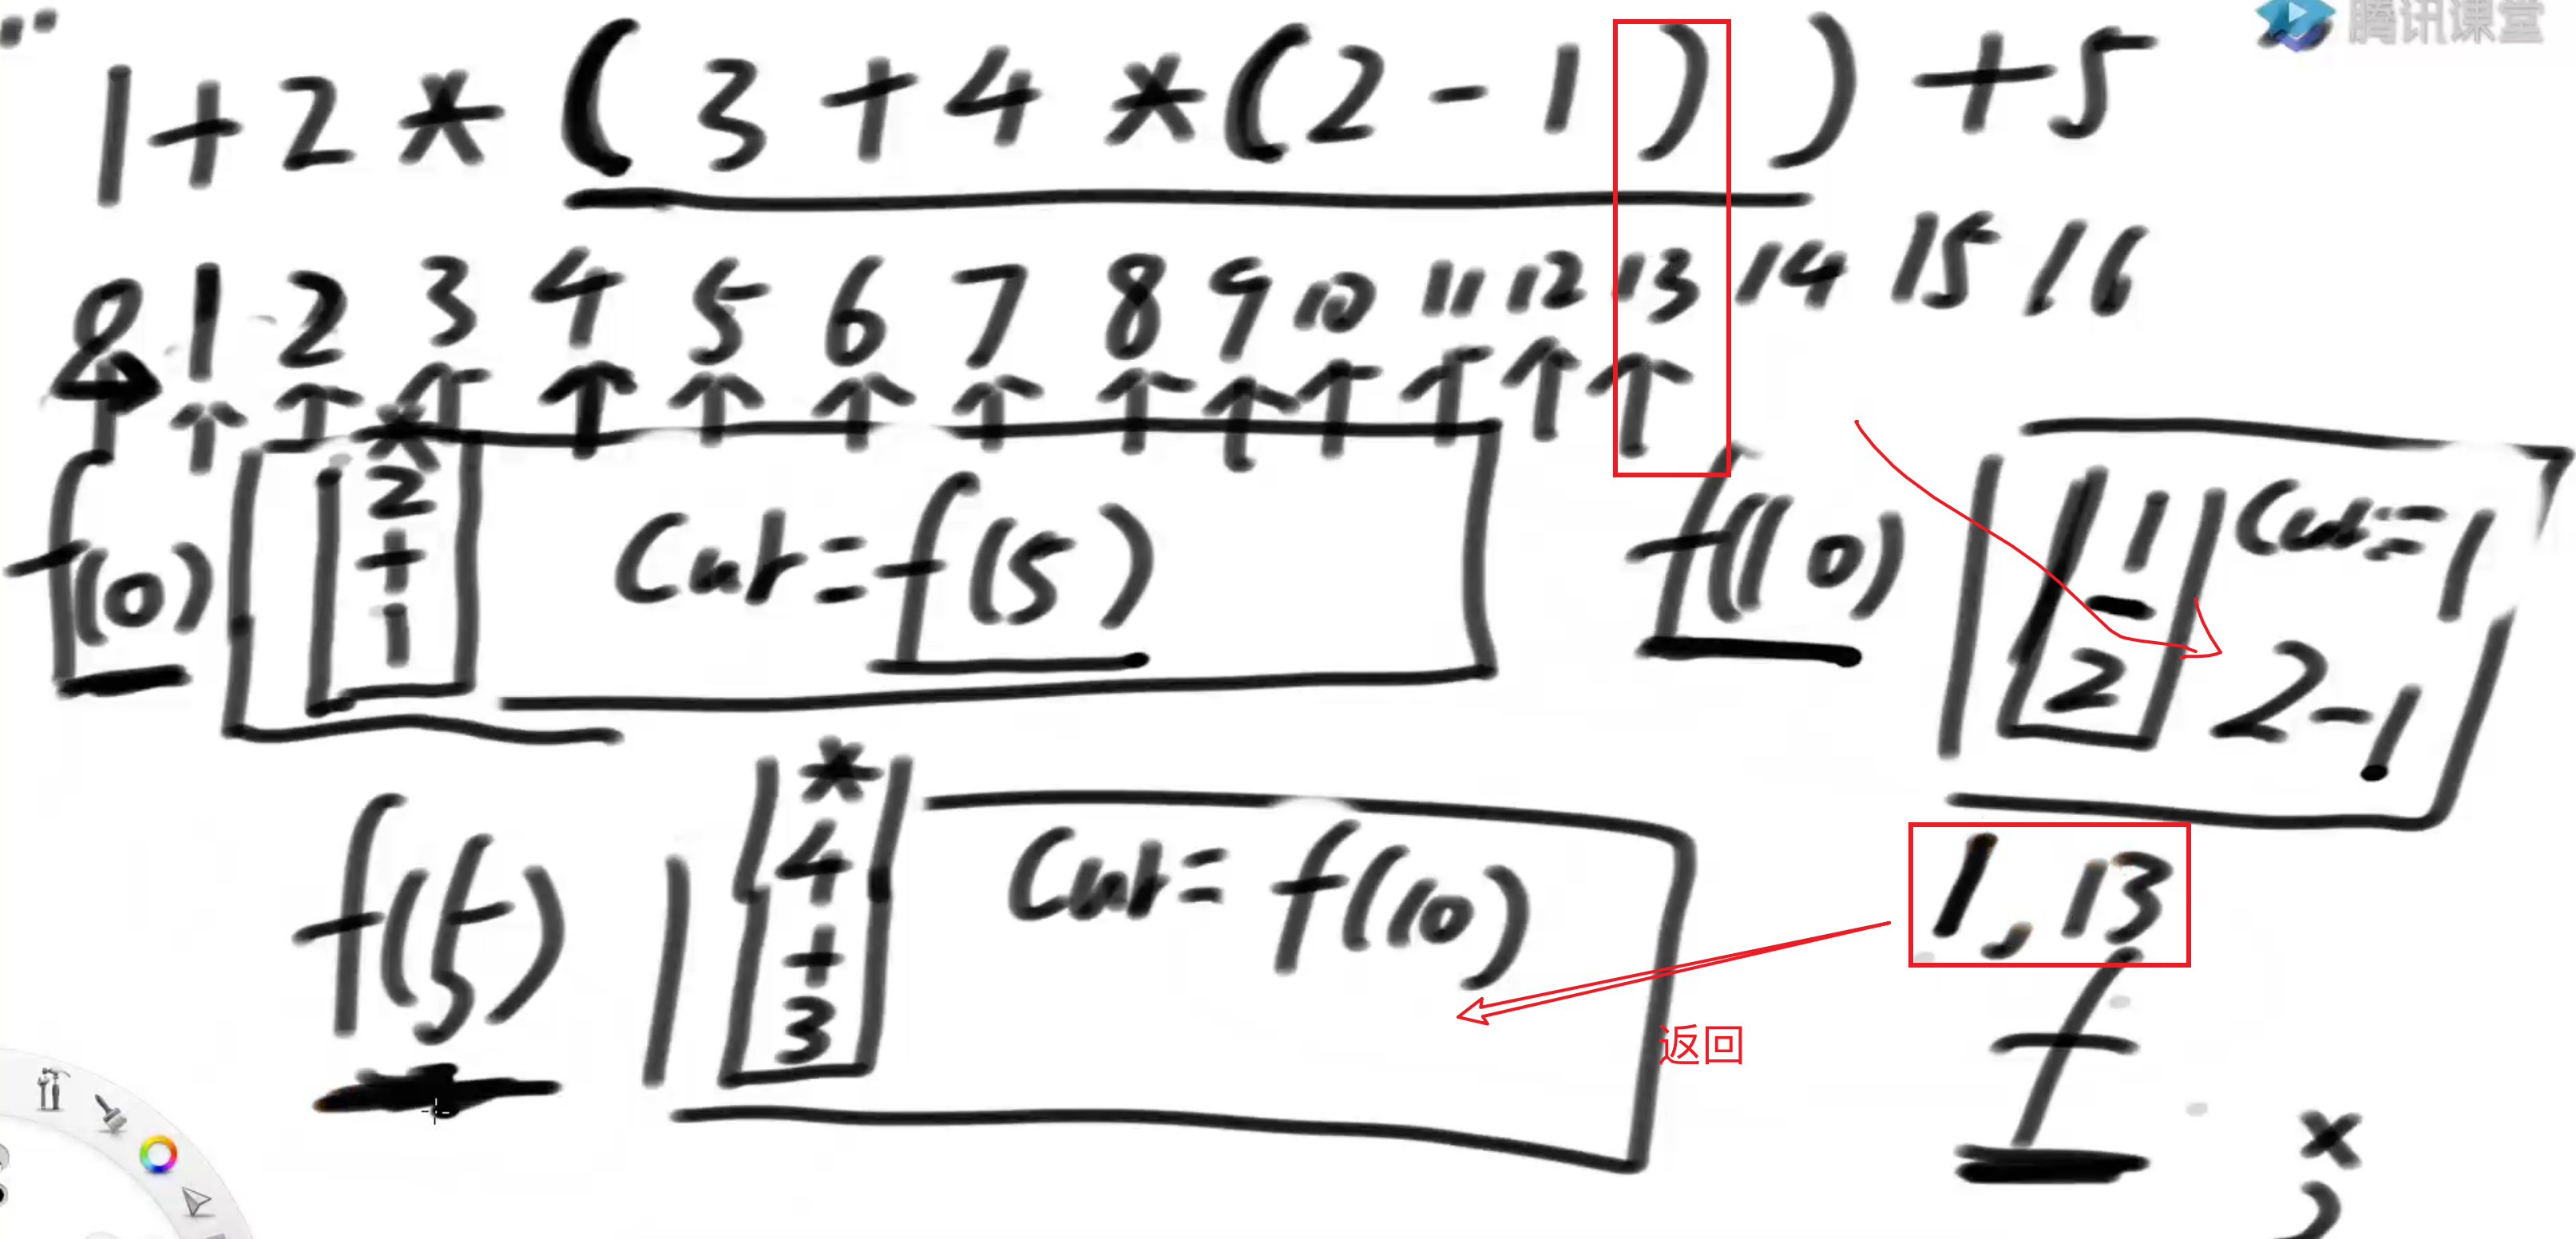 腾讯课堂
1+2*(3+4*(2-1))+5
0 1 2 3 4 5 6 7 8 9 10 11 12 13 14 15 16
f(0)
*
2
+
1
Cur=f(5)
f(10)
1
-
2
Cur=1
2-1
f(5)
*
4
+
3
Cur=f(10)
1,13
返回
f